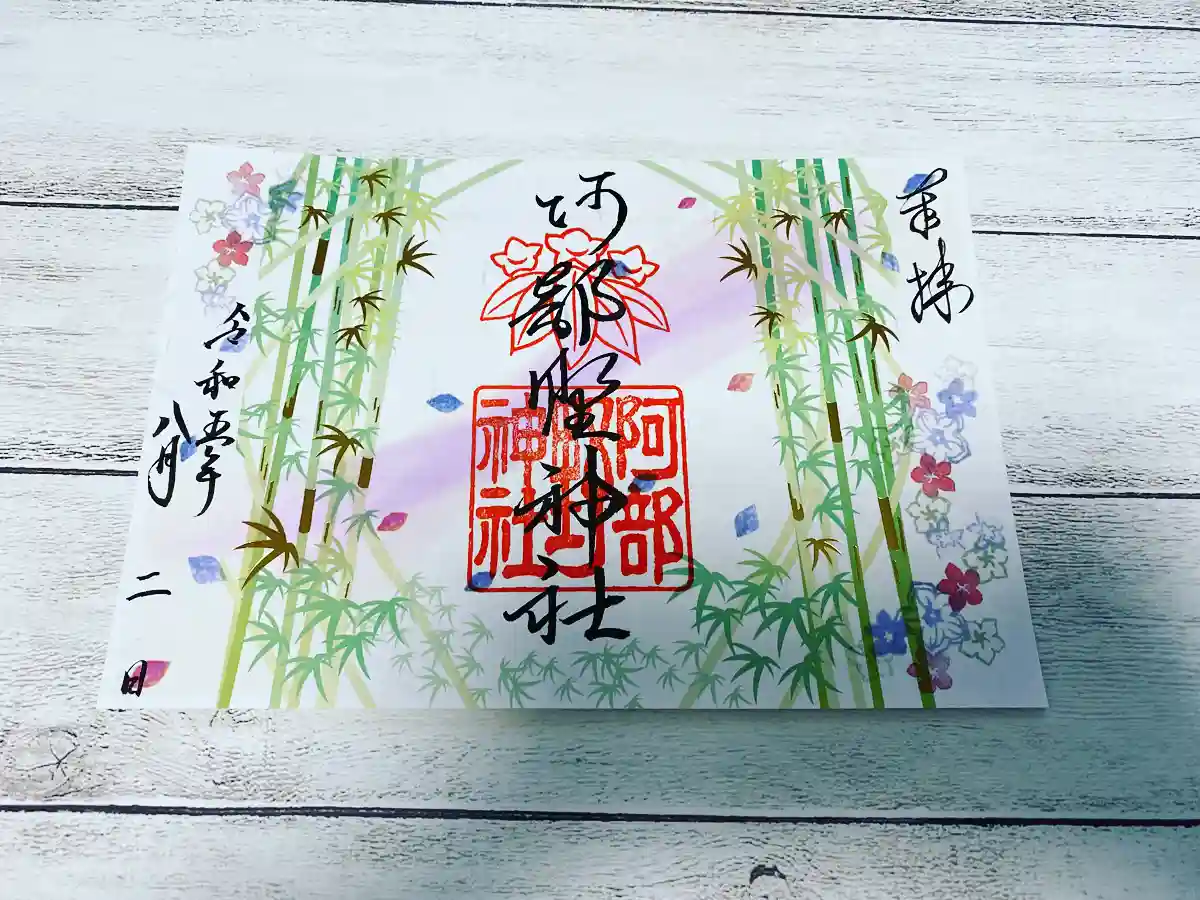 奉拝
阿部埜神社
阿部埜神社
令和五年
八月二日